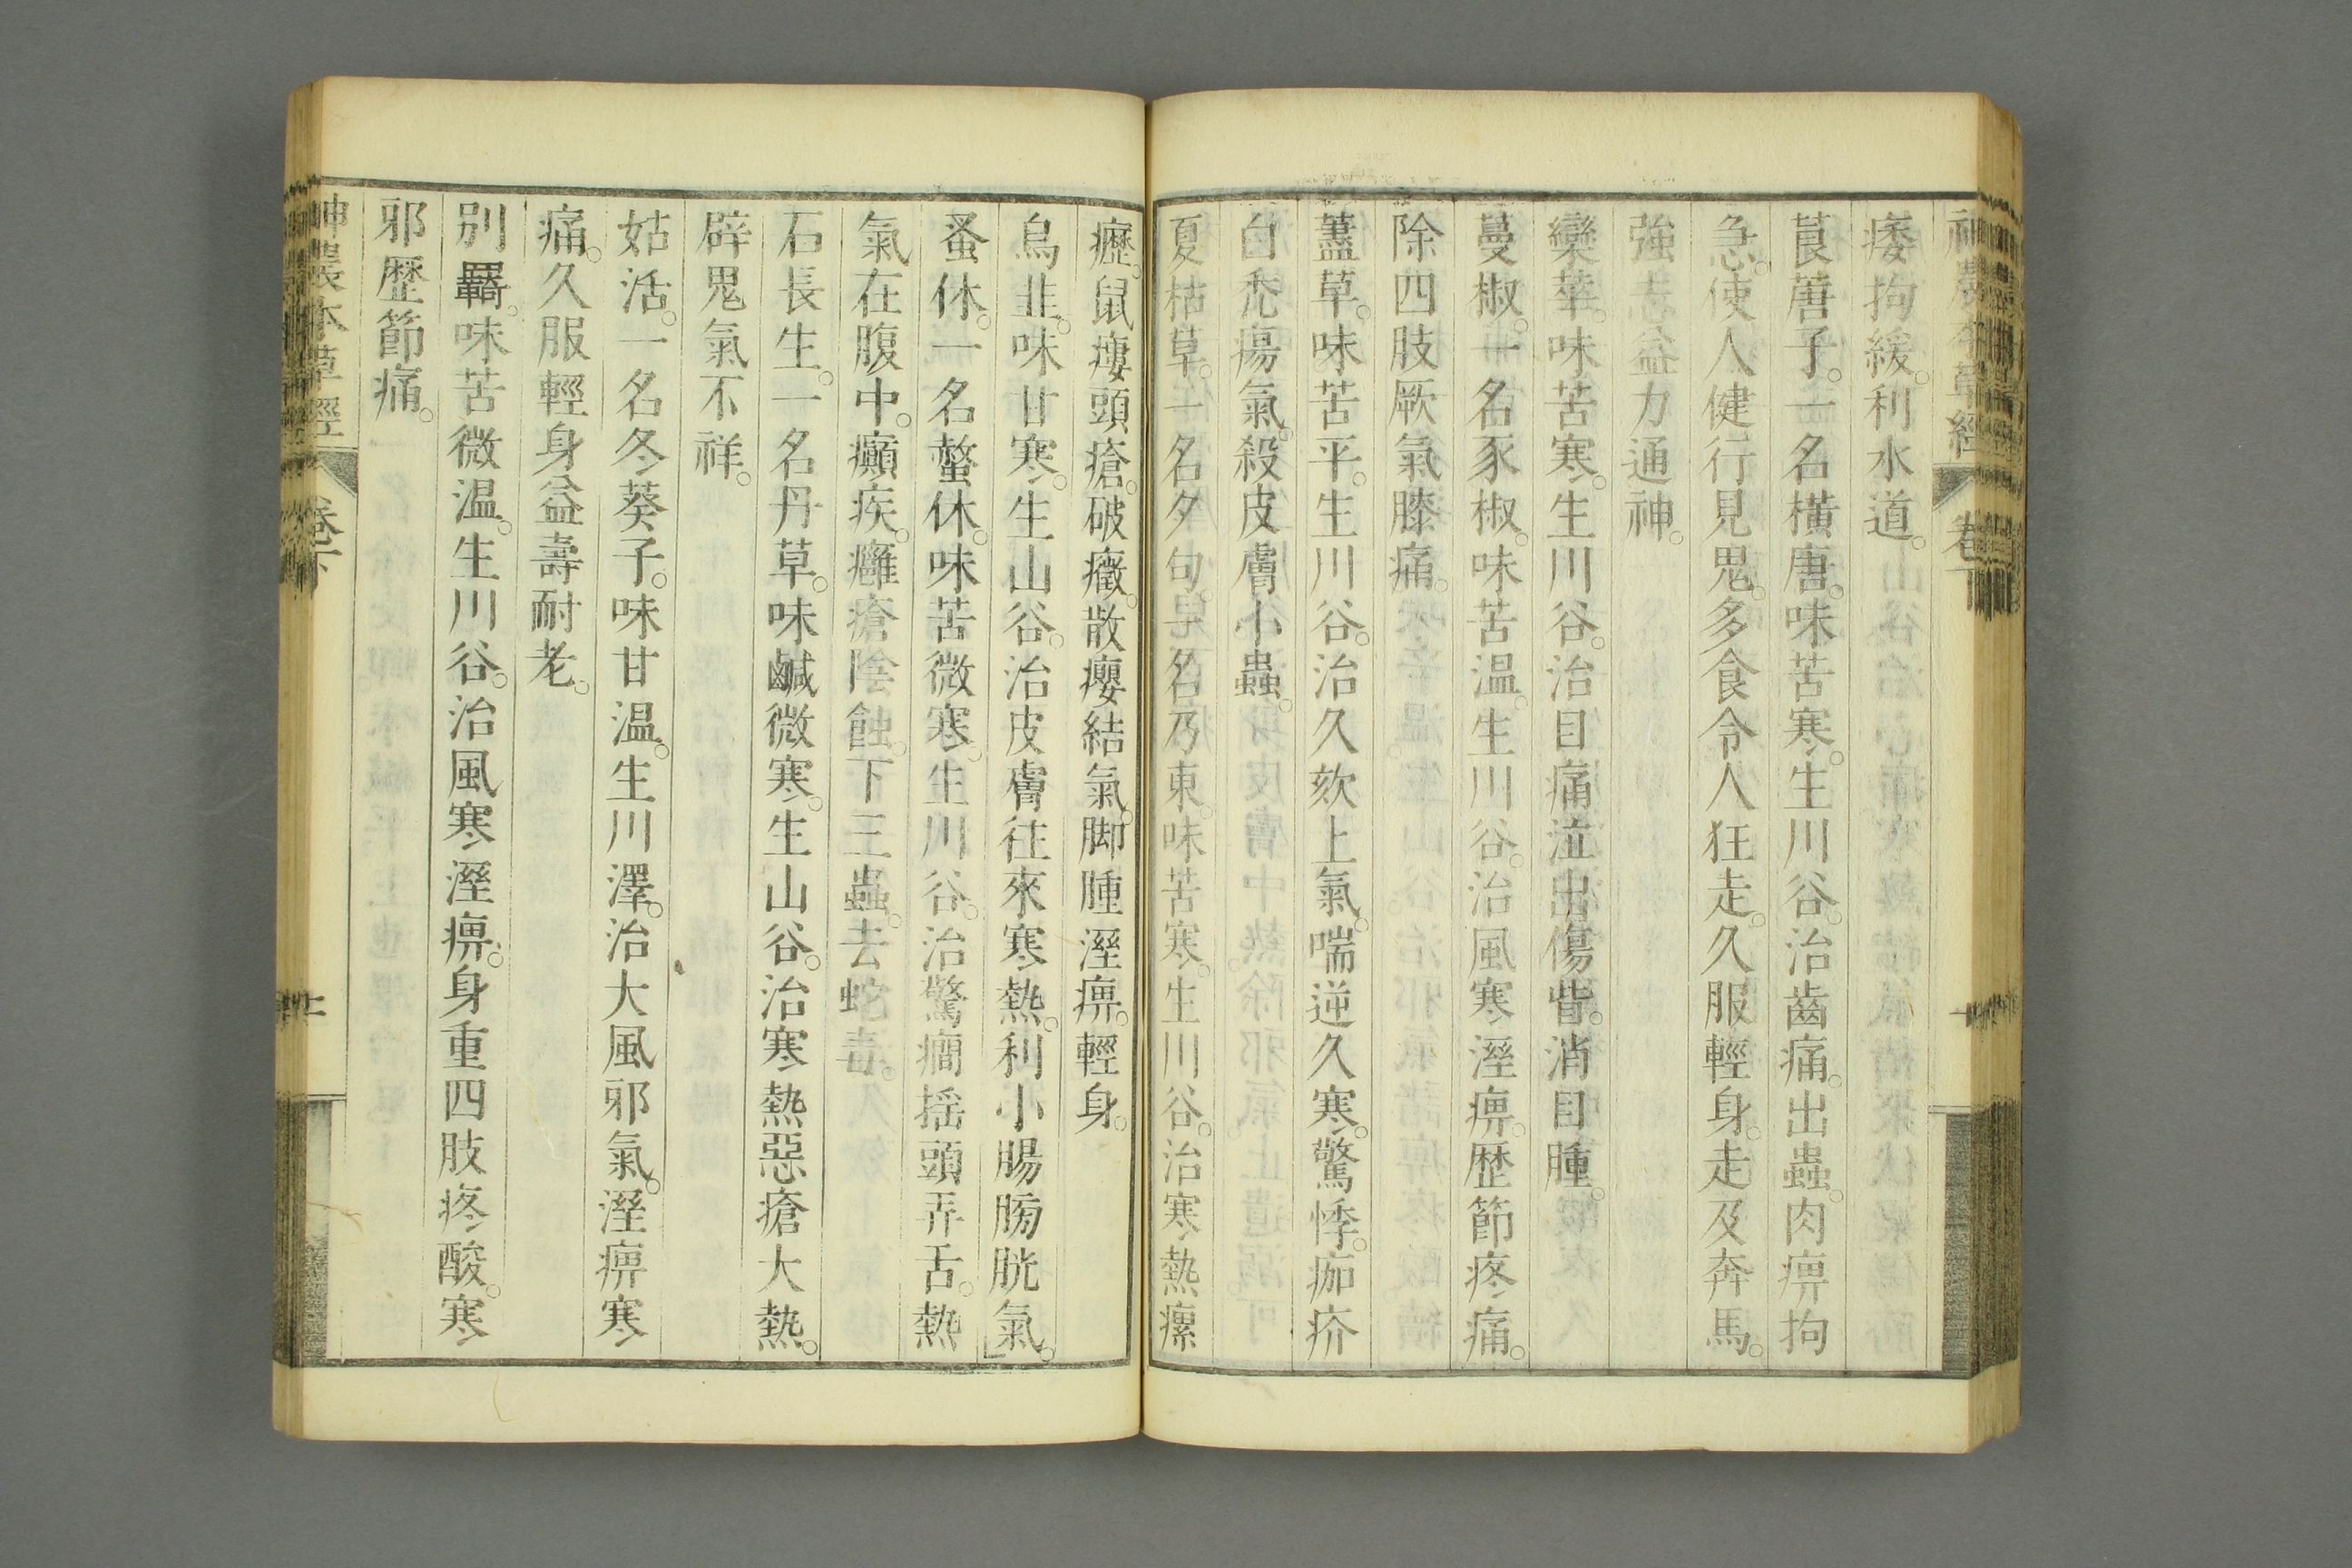 神農本草經 卷下
痿拘緩。利水道。
莨蓎子。一名橫唐。味苦寒。生川谷。治齒痛。出蟲。肉痹拘
急。使人健行見鬼。多食令人狂走。久服輕身。走及奔馬。
強志益力通神。
欒華。味苦寒。生川谷。治目痛泣出傷眥。消目腫。
蔓椒。一名豕椒。味苦溫。生川谷。治風寒溼痹。歷節疼痛。
除四肢厥氣膝痛。
藎草。味苦平。生川谷。治久欬上氣。喘逆久寒。驚悸。痂疥
白禿瘍氣。殺皮膚小蟲。
夏枯草。一名夕句。一名乃東。味苦寒。生川谷。治寒熱瘰
癧。鼠瘻頭瘡。破癥。散癭結氣。脚腫溼痹。輕身。
烏韭。味甘寒。生山谷。治皮膚往來寒熱。利小腸膀胱氣。
蚤休。一名螫休。味苦微寒。生川谷。治驚癎搖頭弄舌。熱
氣在腹中。癲疾。癰瘡陰蝕。下三蟲。去蛇毒。
石長生。一名丹草。味鹹微寒。生山谷。治寒熱惡瘡大熱。
辟鬼氣不祥。
姑活。一名冬葵子。味甘溫。生川澤。治大風邪氣。溼痹寒
痛。久服輕身益壽耐老。
別羇。味苦微溫。生川谷。治風寒溼痹。身重四肢疼酸。寒
邪歷節痛。
神農本草經 卷下